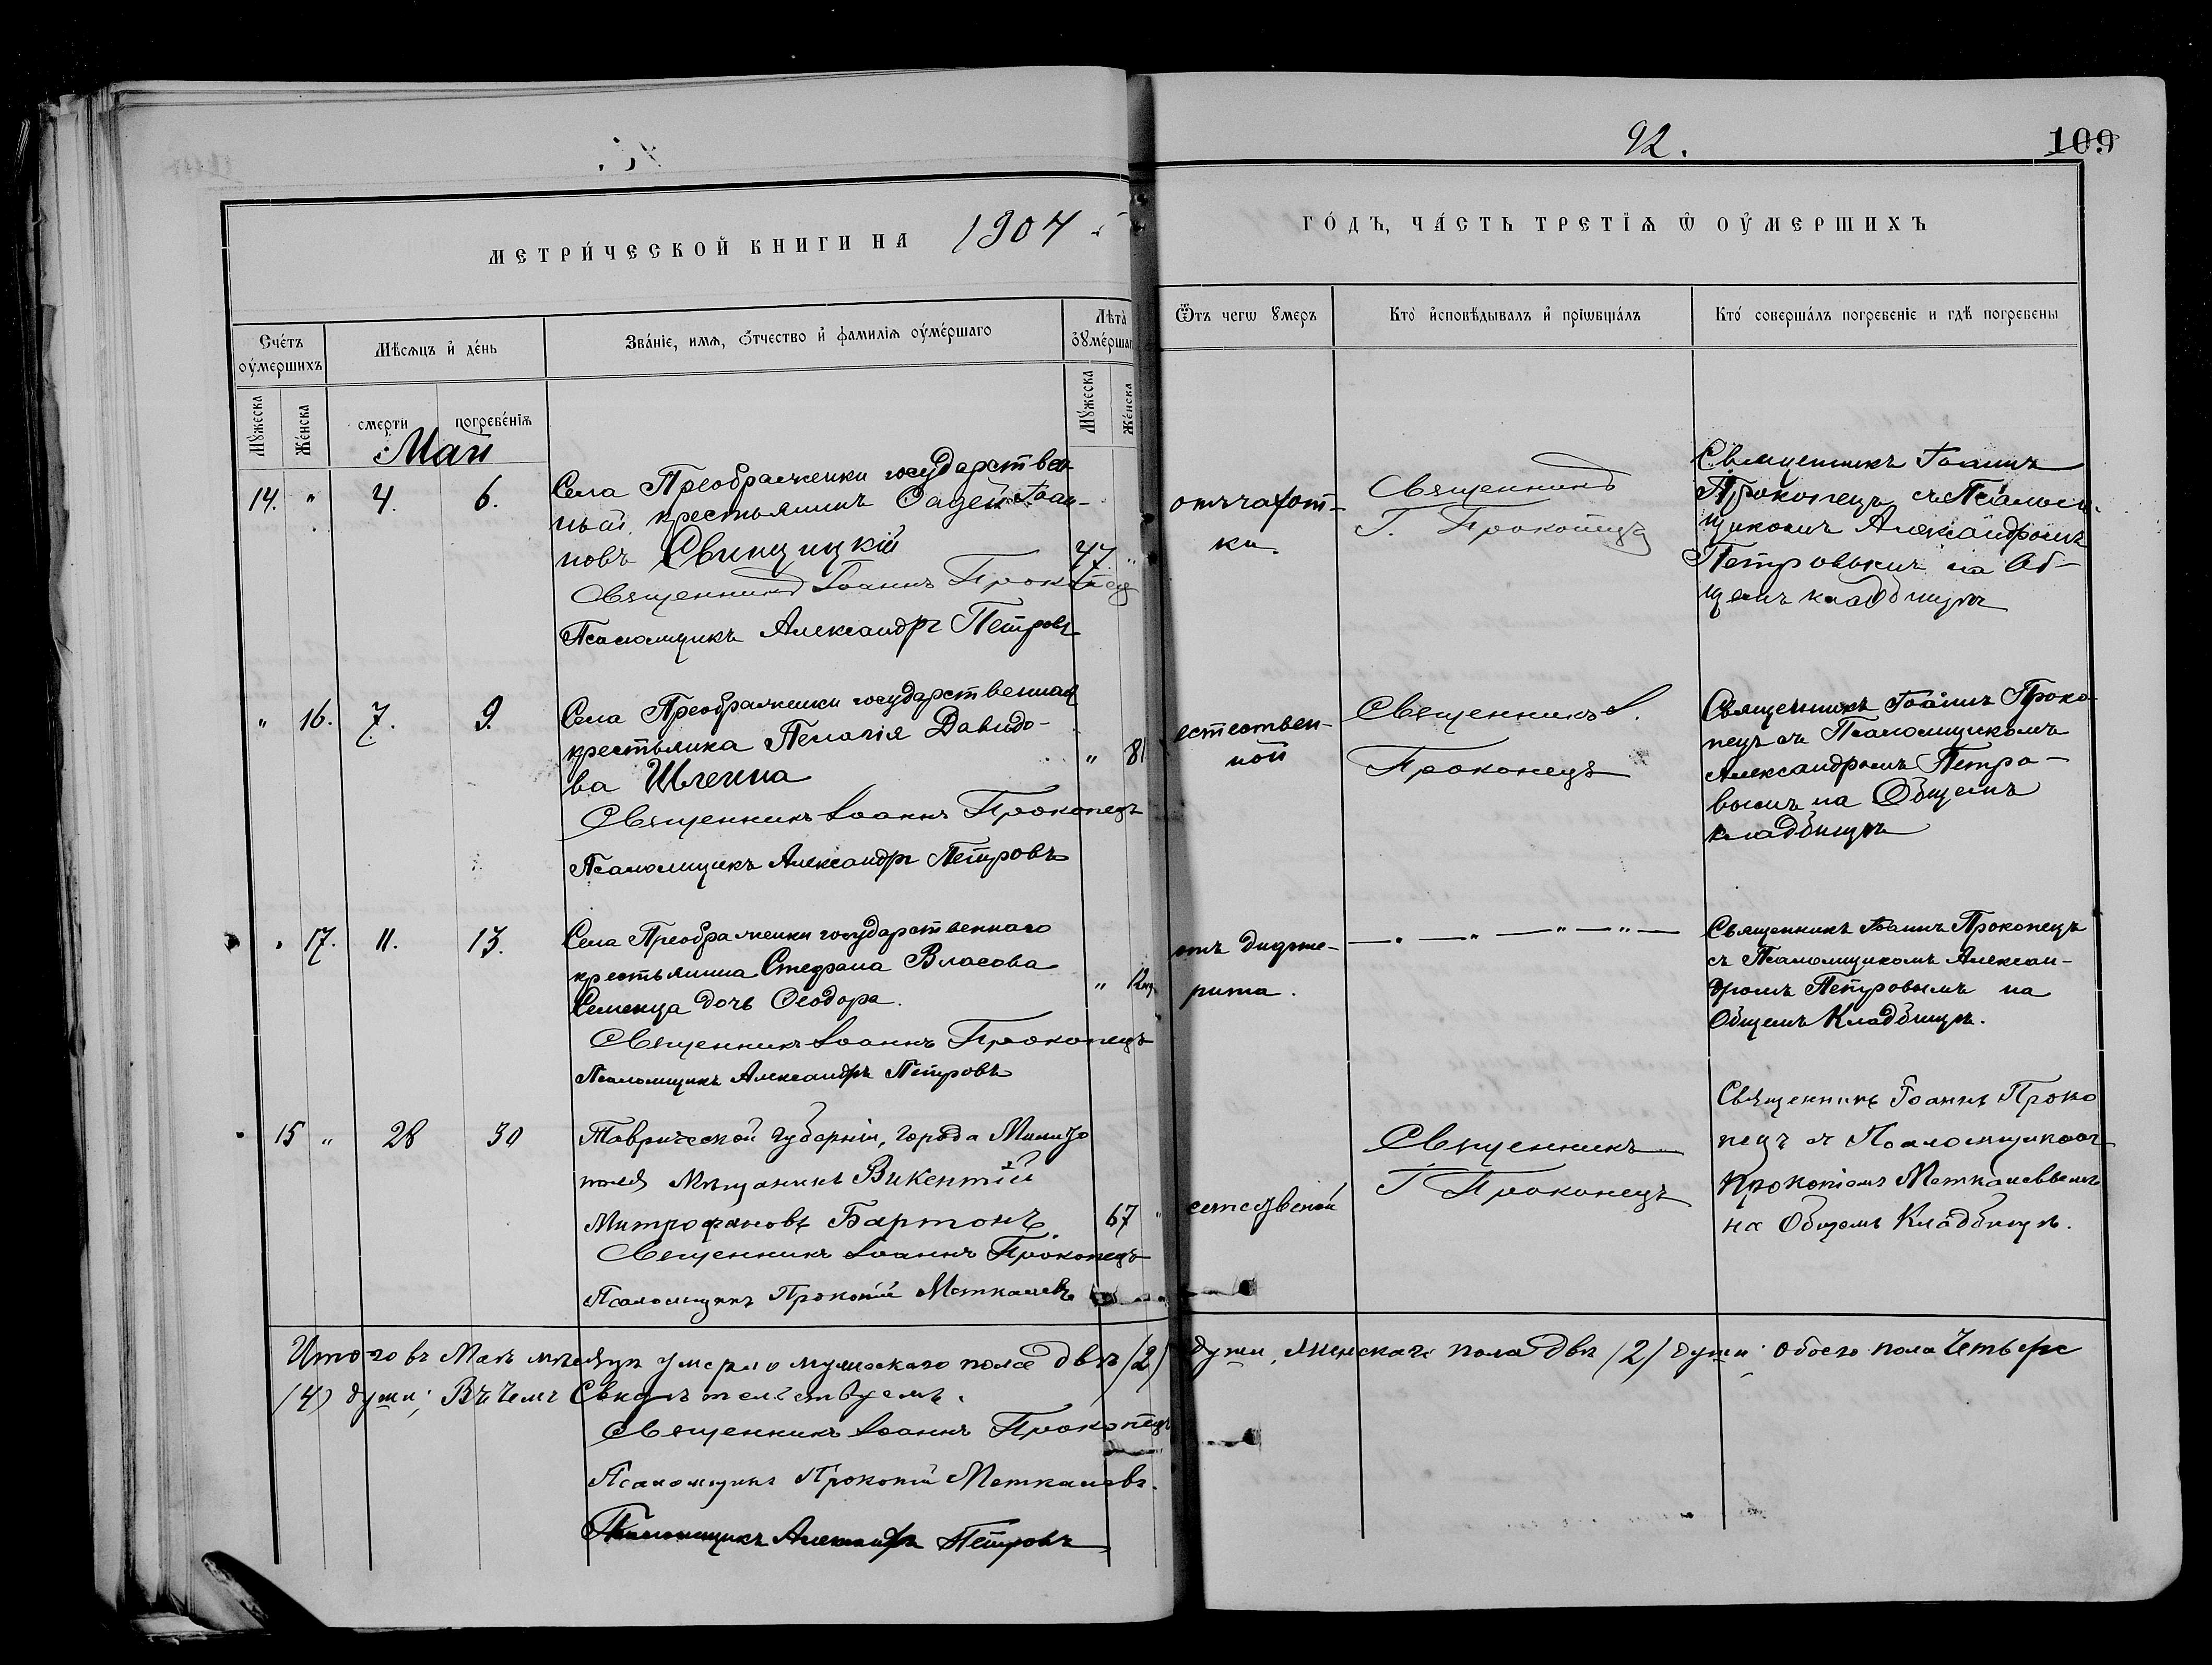 92.
109
МЕТРИ́ЧЕСКОЙ КНИГИ НА 1904
ГО́ДЪ, ЧА́СТЬ ТРЕТІѦ Ѡ҆ ОУ҆МЕРШИХЪ
Сче́тъ оу҆́мершихъ
Мѣ́сѧцъ и҆ де́нь
Зва́ніе, имѧ, ѻ҆́тчество и҆ фамилія оу҆ме́ршаго
Лѣта̀ ѹ҆ме́ршаг
Ѿтъ чегѡ ꙋмеръ
Кто̀ и҆сповѣ́дывалъ и҆ прїѡбща́лъ
Кто́ соверша́лъ погребеніе и гдѣ̀ погребены
Мꙋ́жеска
Же́нска
смерти
погребе́нїѧ
Мꙋ́жеска
Же́нска
Май
14. " 4. 6.
Села Преображенки государствен-
ный крестьянинъ Фадей Іоан-
новъ Свинцицкій
47 "
Священникъ Іоаннъ Прокопец
Псаломщикъ Александръ Петровъ
отъ чахот-
ки.
Священникъ
І. Прокопецъ
Священникъ Іоаннъ
Прокопецъ съ Псаломщ-
щикомъ Александромъ
Петровымъ на Об-
щемъ кладбищѣ
" 16. 7. 9.
Села Преображенки государственная
крестьянка Пелагія Давидо-
ва Шлегина
" 81
Священникъ Іоаннъ Прокопецъ
Псаломщикъ Александръ Петровъ
естествен-
ной
Священникъ І.
Прокопецъ
Священникъ Іоаннъ Проко-
пецъ съ Псаломщикомъ
Александромъ Петро-
вымъ на Общемъ
кладбищѣ
" 17. 11. 13.
Села Преображенки государственнаго
крестьянина Стефана Власова
Семенца дочь Ѳеодора.
" 12 мѣ.
Священникъ Іоаннъ Прокопецъ
Псаломщикъ Александръ Петровъ
отъ дифте-
рита.
— " — " — " — " —
Священникъ Іоаннъ Прокопецъ
съ Псаломщикомъ Алексан-
дромъ Петровымъ на
Общемъ Кладбищѣ.
15 " 28 30
Таврической губерніи, города Мелито
поля мѣщанинъ Викентій
Митрофановъ Бартонъ.
67 "
Священникъ Іоаннъ Прокопецъ
Псаломщикъ Прокопій Меткалевъ
естественой
Священникъ
І Прокопецъ
Священникъ Іоаннъ Проко
пецъ съ Псаломщикомъ
Прокопіемъ Меткалевымъ
на Общемъ Кладбищѣ.
Итого въ Маѣ мѣсяцѣ умерло мужескаго пола двѣ /2/ души, женскаго пола двѣ /2/ души; обоего пола четыре
/4/ души; Въ чемъ Свидѣтельствуемъ.
Священникъ Іоаннъ Прокопецъ
Псаломщикъ Прокопій Меткалевъ.
Псаломщикъ Александръ Петровъ